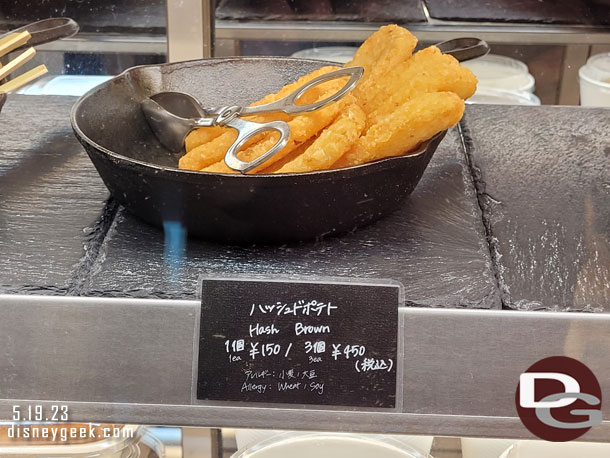 ハッシュドポテト
Hash Brown
1個 ¥150 / 3個 ¥450
1ea 3ea (税込)
アレルギー：小麦/大豆
Allergy: Wheat/Soy
5.19.23
disneygeek.com
DG